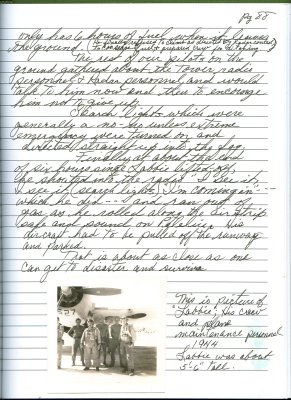 Pg 58
only has 6 hours of fuel when it leaves
the ground.
The rest of our pilots on the
ground gathered about the Tower, radio
personnel & Radar personnel and would
talk to him now and then to encourage
him not to give up.
Search lights which were
generally a no-no unless extreme
emergency were turned on and
directed straight up into the fog.
Finally at about the end
of six hours since Labbie lifted off,
he shouted into the radio "I see it,
I see it, search light. I'm coming in" ---
which he did --- and ran out of
gas as he rolled along the air strip
safe and sound on Peleliu. His
aircraft had to be pulled off the runway
and parked.
That is about as close as one
can get to disaster and survive
527
This is picture of
"Labbie", his crew
and plane
maintenance personnel
1944
Labbie was about
5'-6" tall.